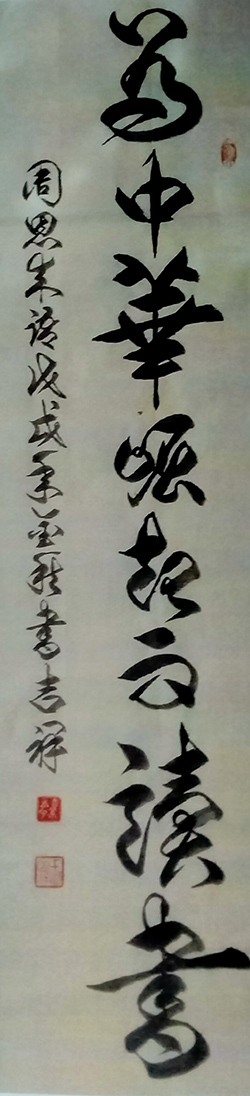 為中華崛起而讀書
周恩来語戊戌季墨秋書吉祥